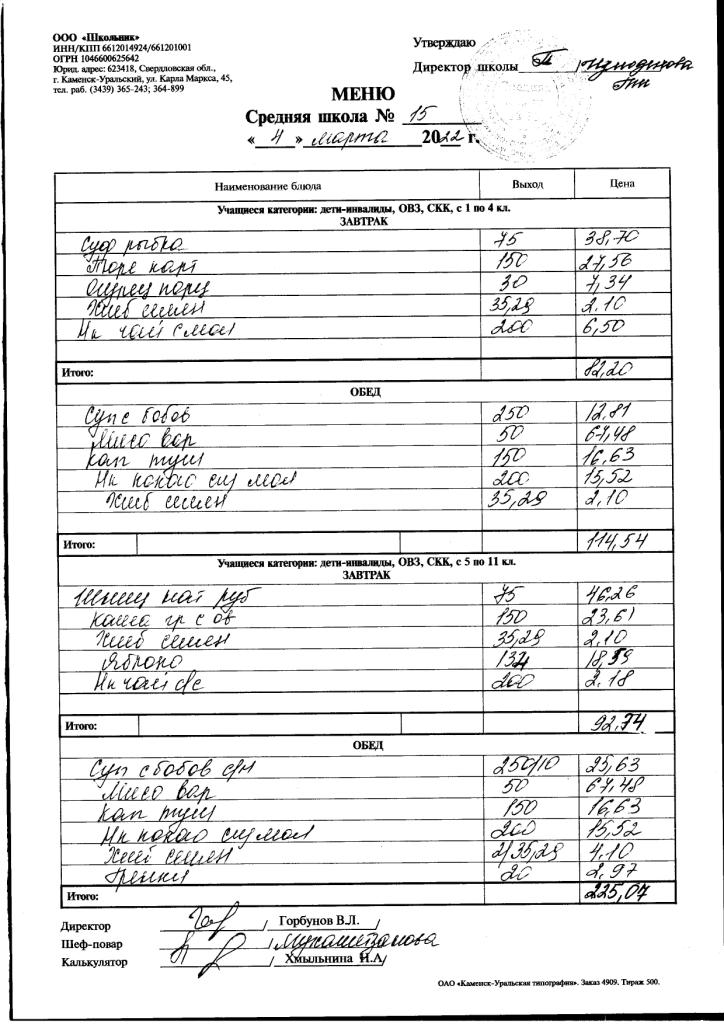 ООО «Школьник»
ИНН/КПП 6612014924/661201001
ОГРН 1046600625642
Юрид. адрес: 623418, Свердловская обл.,
г. Каменск-Уральский, ул. Карла Маркса, 45,
тел. раб. (3439) 365-243; 364-899
Утверждаю
Директор школы
МЕНЮ
Средняя школа № 15
« 4 » марта 2022 г.
Наименование блюда Выход Цена
Учащиеся категории: дети-инвалиды, ОВЗ, СКК, с 1 по 4 кл.
ЗАВТРАК
Суф рыбн 75 38,70
Пюре карт 150 27,56
Огурец порц 30 7,34
Хлеб 35,29 2.10
Нк чай с мол 200 6,50
Итого: 82,20
ОБЕД
Суп с бобов 250 12,81
Мясо вар 50 67,48
Кап туш 150 16,63
Нк какао сгу мол 200 15,52
Хлеб 35,29 2,10
Итого: 114,54
Учащиеся категории: дети-инвалиды, ОВЗ, СКК, с 5 по 11 кл.
ЗАВТРАК
Шниц нат руб 75 46,26
Каша гр с ов 150 23,61
Хлеб 35,29 2,10
Яблоко 18,59
Нк чай 200 2,18
Итого: 92,74
ОБЕД
Суп с бобов 250/10 25,63
Мясо вар 50 67,48
Кап туш 150 16,63
Нк какао сгу мол 200 15,52
Хлеб 2/35,29 4,10
Гренки 20 2,97
Итого: 225,07
Директор / Горбунов В.Л. /
Шеф-повар
Калькулятор / Хмыльнина Н.А/
ОАО «Каменск-Уральская типография». Заказ 4909. Тираж 500.